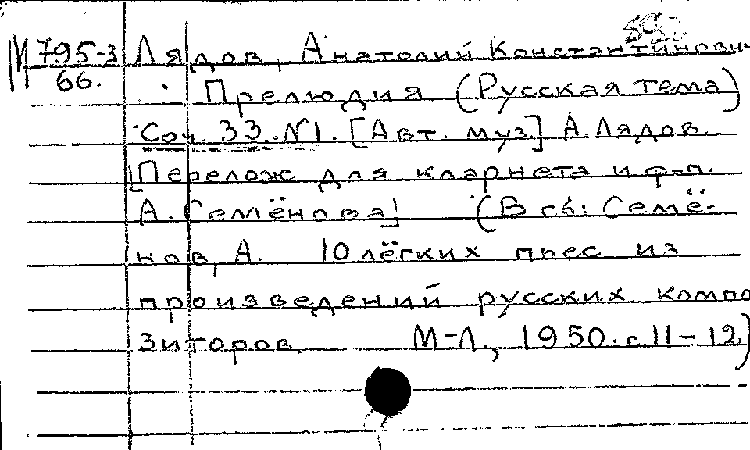 М 795-3 Лядов, Анатолий Константинович
66. Прелюдия (Русская тема)
Соч. 33. №1. [Авт. муз.] А. Лядов.
[Перелож для кларнета и ф-п.
А. Семёнова] (В сб: Семё-
нов, А. 10 лёгких пьес из
произведений русских компо
зиторов М-Л., 1950. с. 11-12)